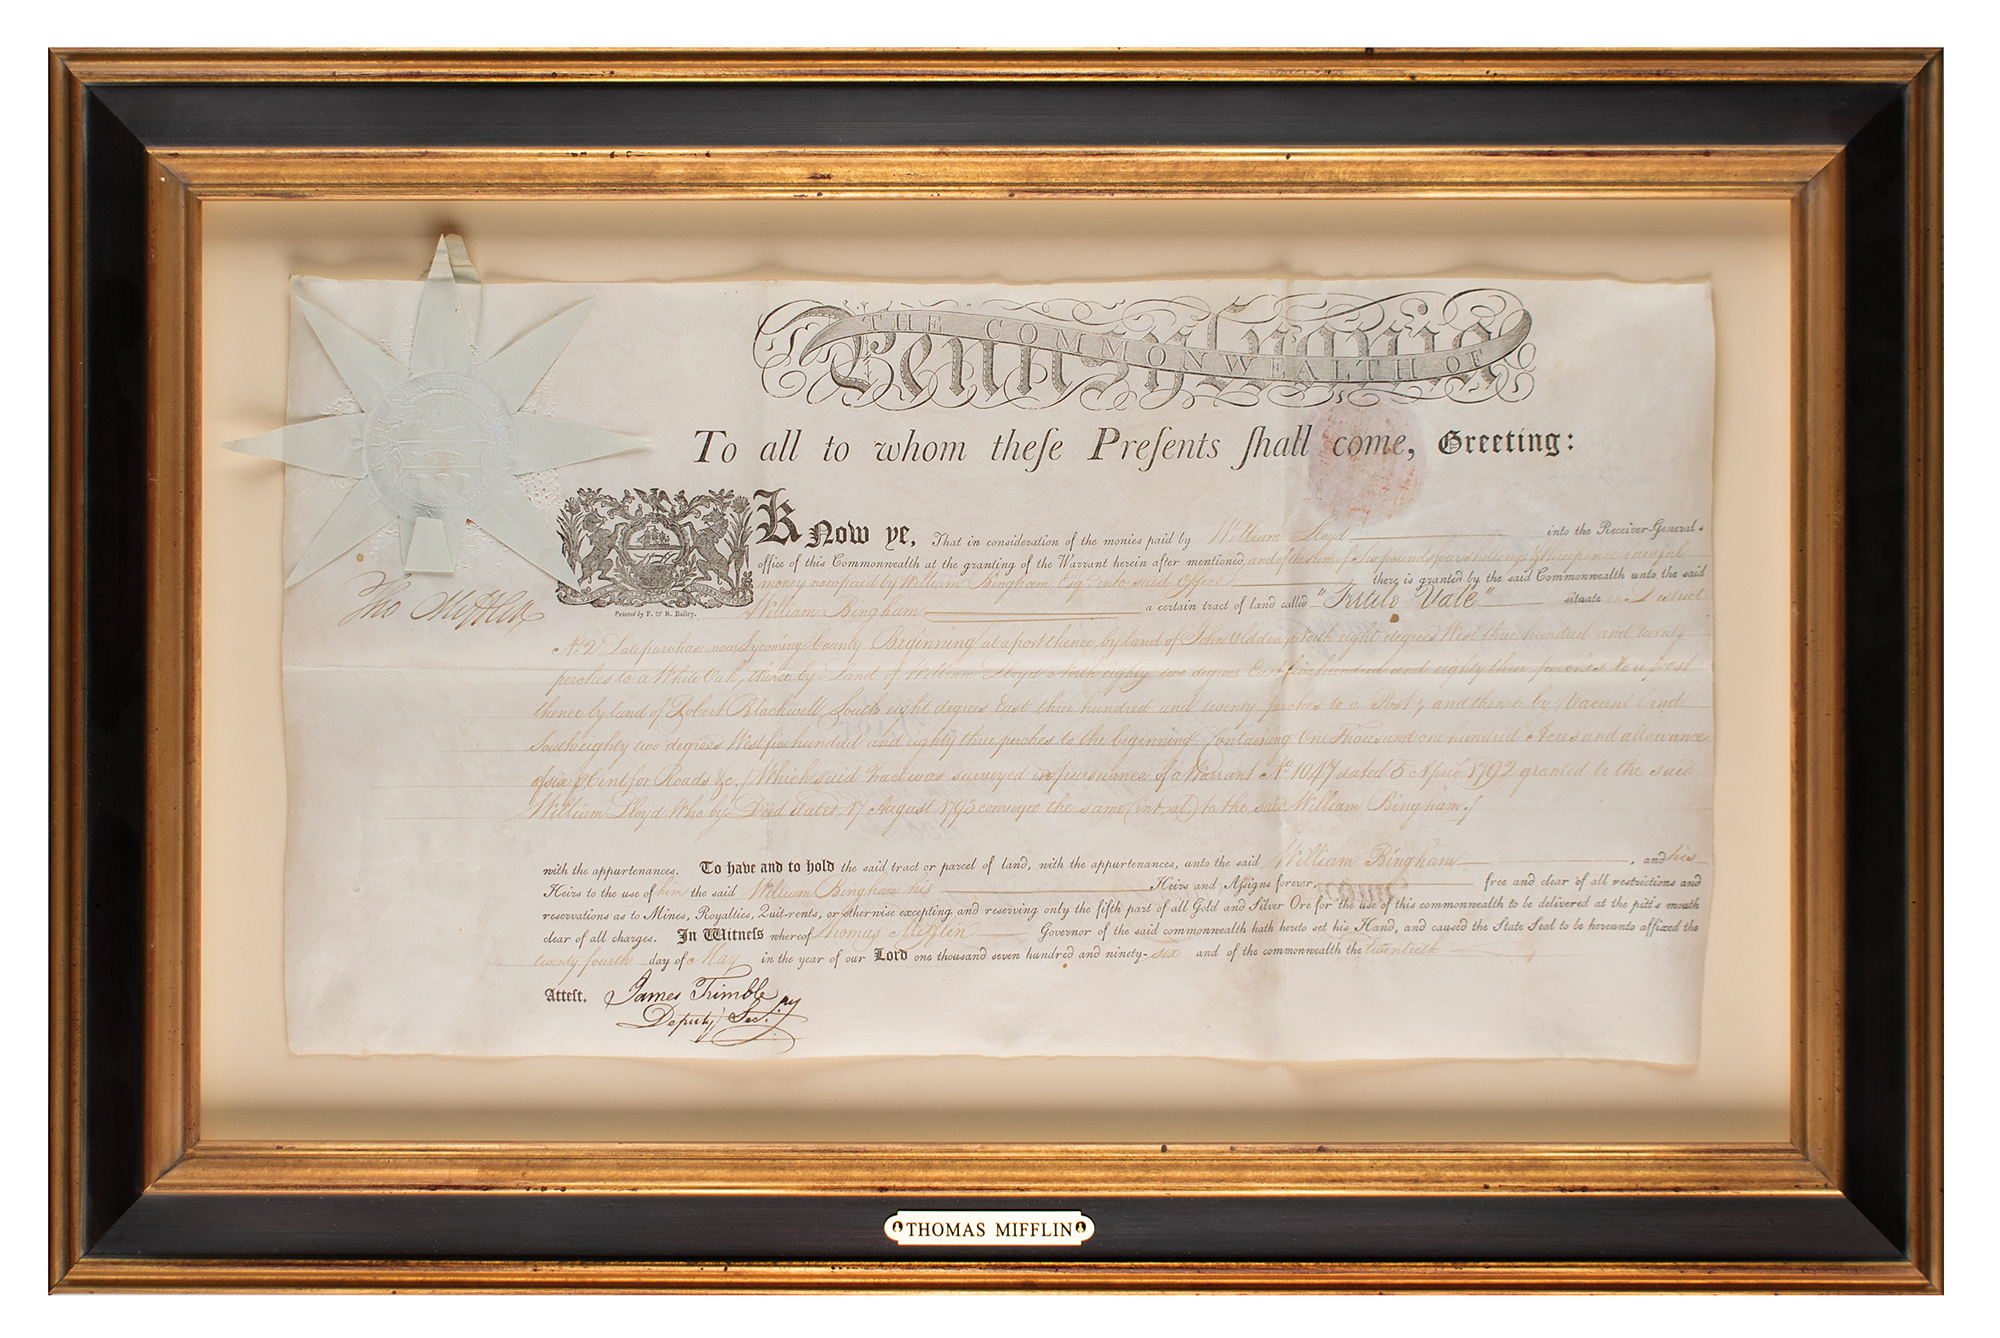 THE COMMONWEALTH OF
Pennsylvania
To all to whom theſe Preſents ſhall come, Greeting:
Know ye, That in consideration of the monies paid by William Lloyd into the Receiver-General's
office of this Commonwealth at the granting of the Warrant herein after mentioned and of the sum of Six pounds four shillings & three pence lawful
money now paid by William Bingham Esqr. into said office there is granted by the said Commonwealth unto the said
William Bingham a certain tract of land called " Vale" situate in District
Printed by F. & R. Bailey.
Tho Mifflin
No. 2 Late purchase now Lycoming County Beginning at a post thence by land of John Olddon North eight degrees West three hundred and twenty
perches to a White Oak, thence by Land of William Lloyd North eighty two degrees East five hundred and eighty three perches to a post
thence by land of Robert Blackwell South eight degrees East three hundred and twenty perches to a Post, and thence by Vacant land
South eighty two degrees West five hundred and eighty three perches to the beginning Containing One Thousand one hundred Acres and allowance
of six Cent for Roads &c. / Which said Tract was surveyed in pursuance of a Warrant No. 1047 dated 5 April 1792 granted to the said
William Lloyd Who by Deed dated 17 August 1793 conveyed the same (int. al.) to the said William Bingham./
with the appurtenances. To have and to hold the said tract or parcel of land, with the appurtenances, unto the said William Bingham, and his
Heirs to the use of him the said William Bingham his Heirs and Aſsigns forever, free and clear of all restrictions and
reservations as to Mines, Royalties, Quit-rents, or otherwise excepting and reserving only the fifth part of all Gold and Silver Ore for the use of this commonwealth to be delivered at the pitt's mouth
clear of all charges. In Witneſs whereof Thomas Mifflin Governor of the said commonwealth hath hereto set his Hand, and caused the State Seal to be hereunto affixed the
twenty fourth day of May in the year of our Lord one thousand seven hundred and ninety-six and of the commonwealth the twentieth
Atteſt. James Trimble
Deputy Secy.
THOMAS MIFFLIN